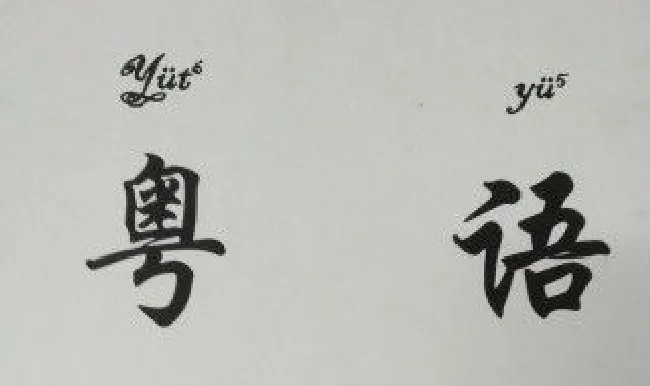 Yüt⁶ yü⁵
粤语